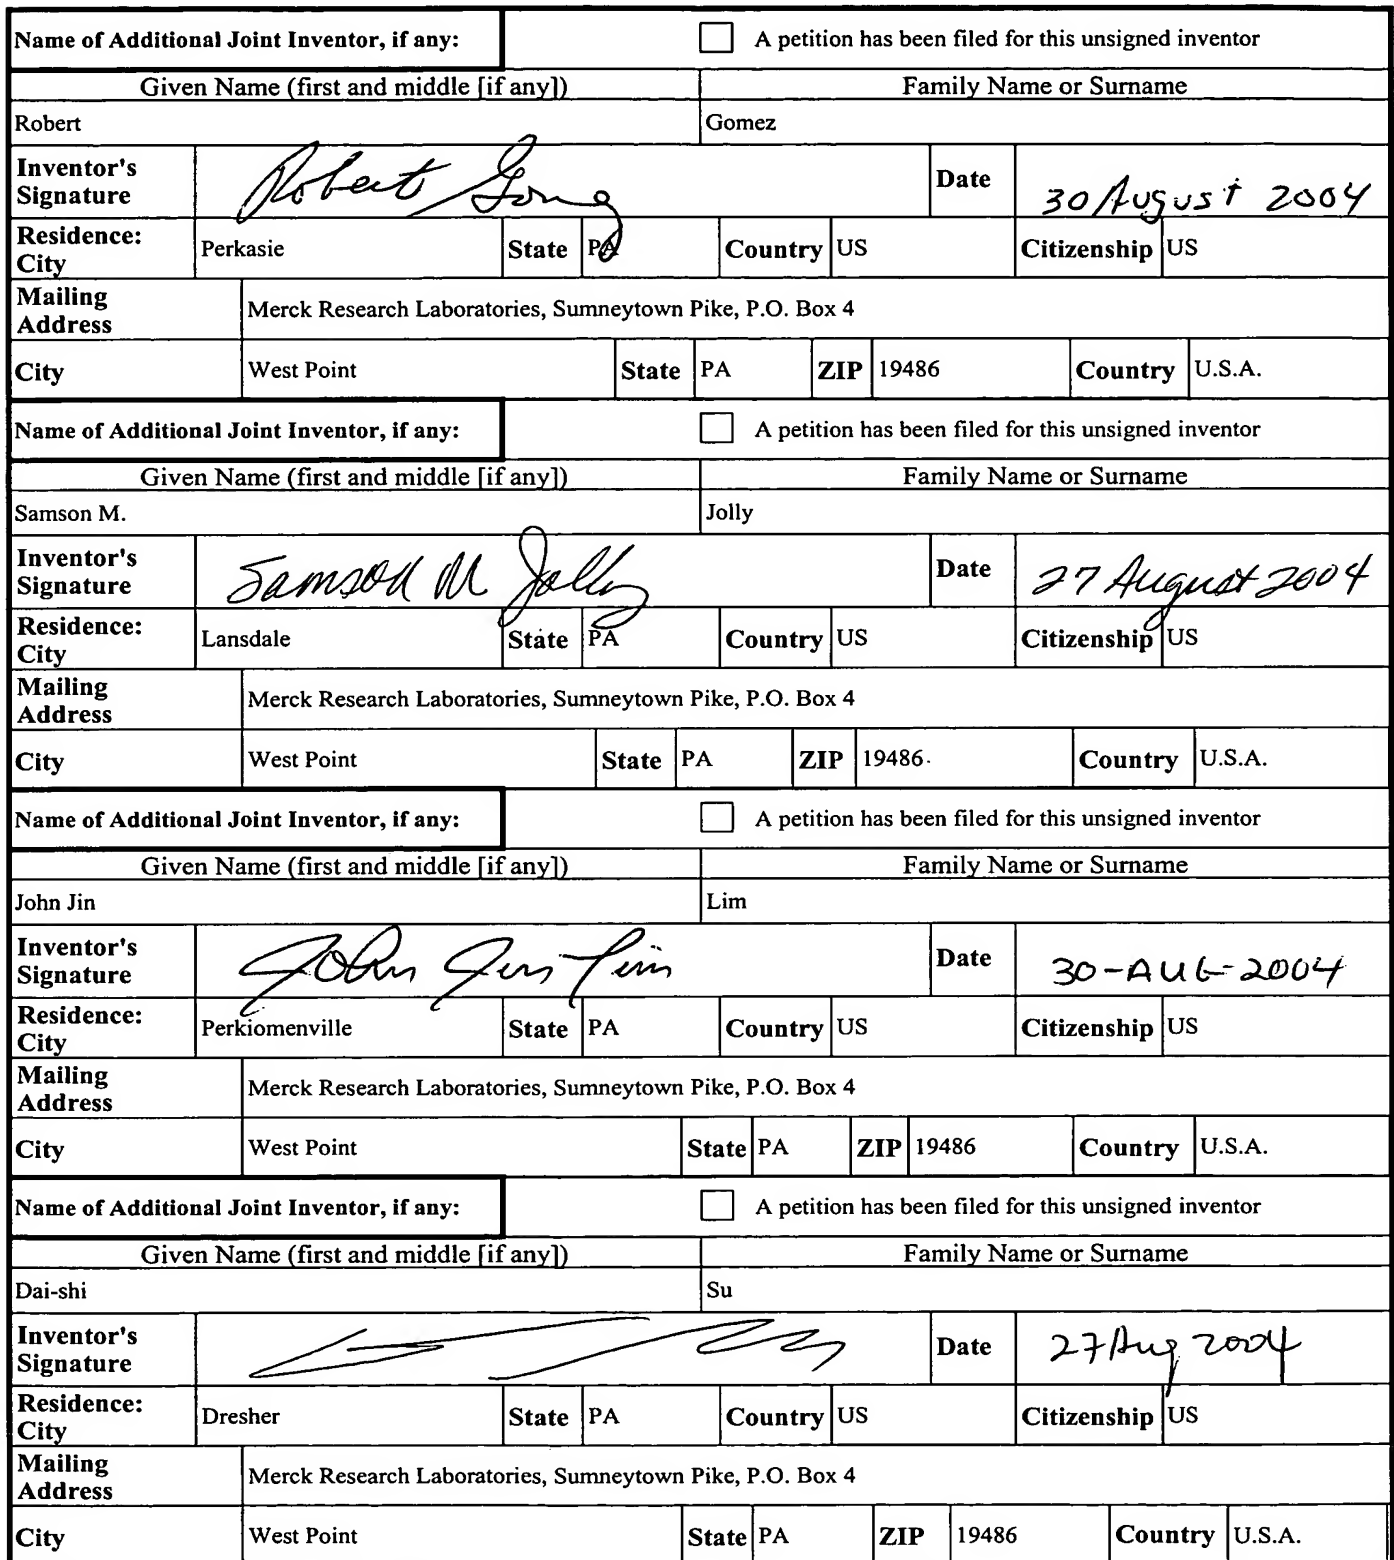 Name of Additional Joint Inventor, if any: A petition has been filed for this unsigned inventor
Given Name (first and middle [if any]) Family Name or Surname
Robert Gomez
Inventor's Signature Robert Gomez Date 30 August 2004
Residence: City Perkasie State PA Country US Citizenship US
Mailing Address Merck Research Laboratories, Sumneytown Pike, P.O. Box 4
City West Point State PA ZIP 19486 Country U.S.A.
Name of Additional Joint Inventor, if any: A petition has been filed for this unsigned inventor
Given Name (first and middle [if any]) Family Name or Surname
Samson M. Jolly
Inventor's Signature Samson M Jolly Date 27 August 2004
Residence: City Lansdale State PA Country US Citizenship US
Mailing Address Merck Research Laboratories, Sumneytown Pike, P.O. Box 4
City West Point State PA ZIP 19486 Country U.S.A.
Name of Additional Joint Inventor, if any: A petition has been filed for this unsigned inventor
Given Name (first and middle [if any]) Family Name or Surname
John Jin Lim
Inventor's Signature John Jin Lim Date 30-AUG-2004
Residence: City Perkiomenville State PA Country US Citizenship US
Mailing Address Merck Research Laboratories, Sumneytown Pike, P.O. Box 4
City West Point State PA ZIP 19486 Country U.S.A.
Name of Additional Joint Inventor, if any: A petition has been filed for this unsigned inventor
Given Name (first and middle [if any]) Family Name or Surname
Dai-shi Su
Inventor's Signature Date 27 Aug 2004
Residence: City Dresher State PA Country US Citizenship US
Mailing Address Merck Research Laboratories, Sumneytown Pike, P.O. Box 4
City West Point State PA ZIP 19486 Country U.S.A.